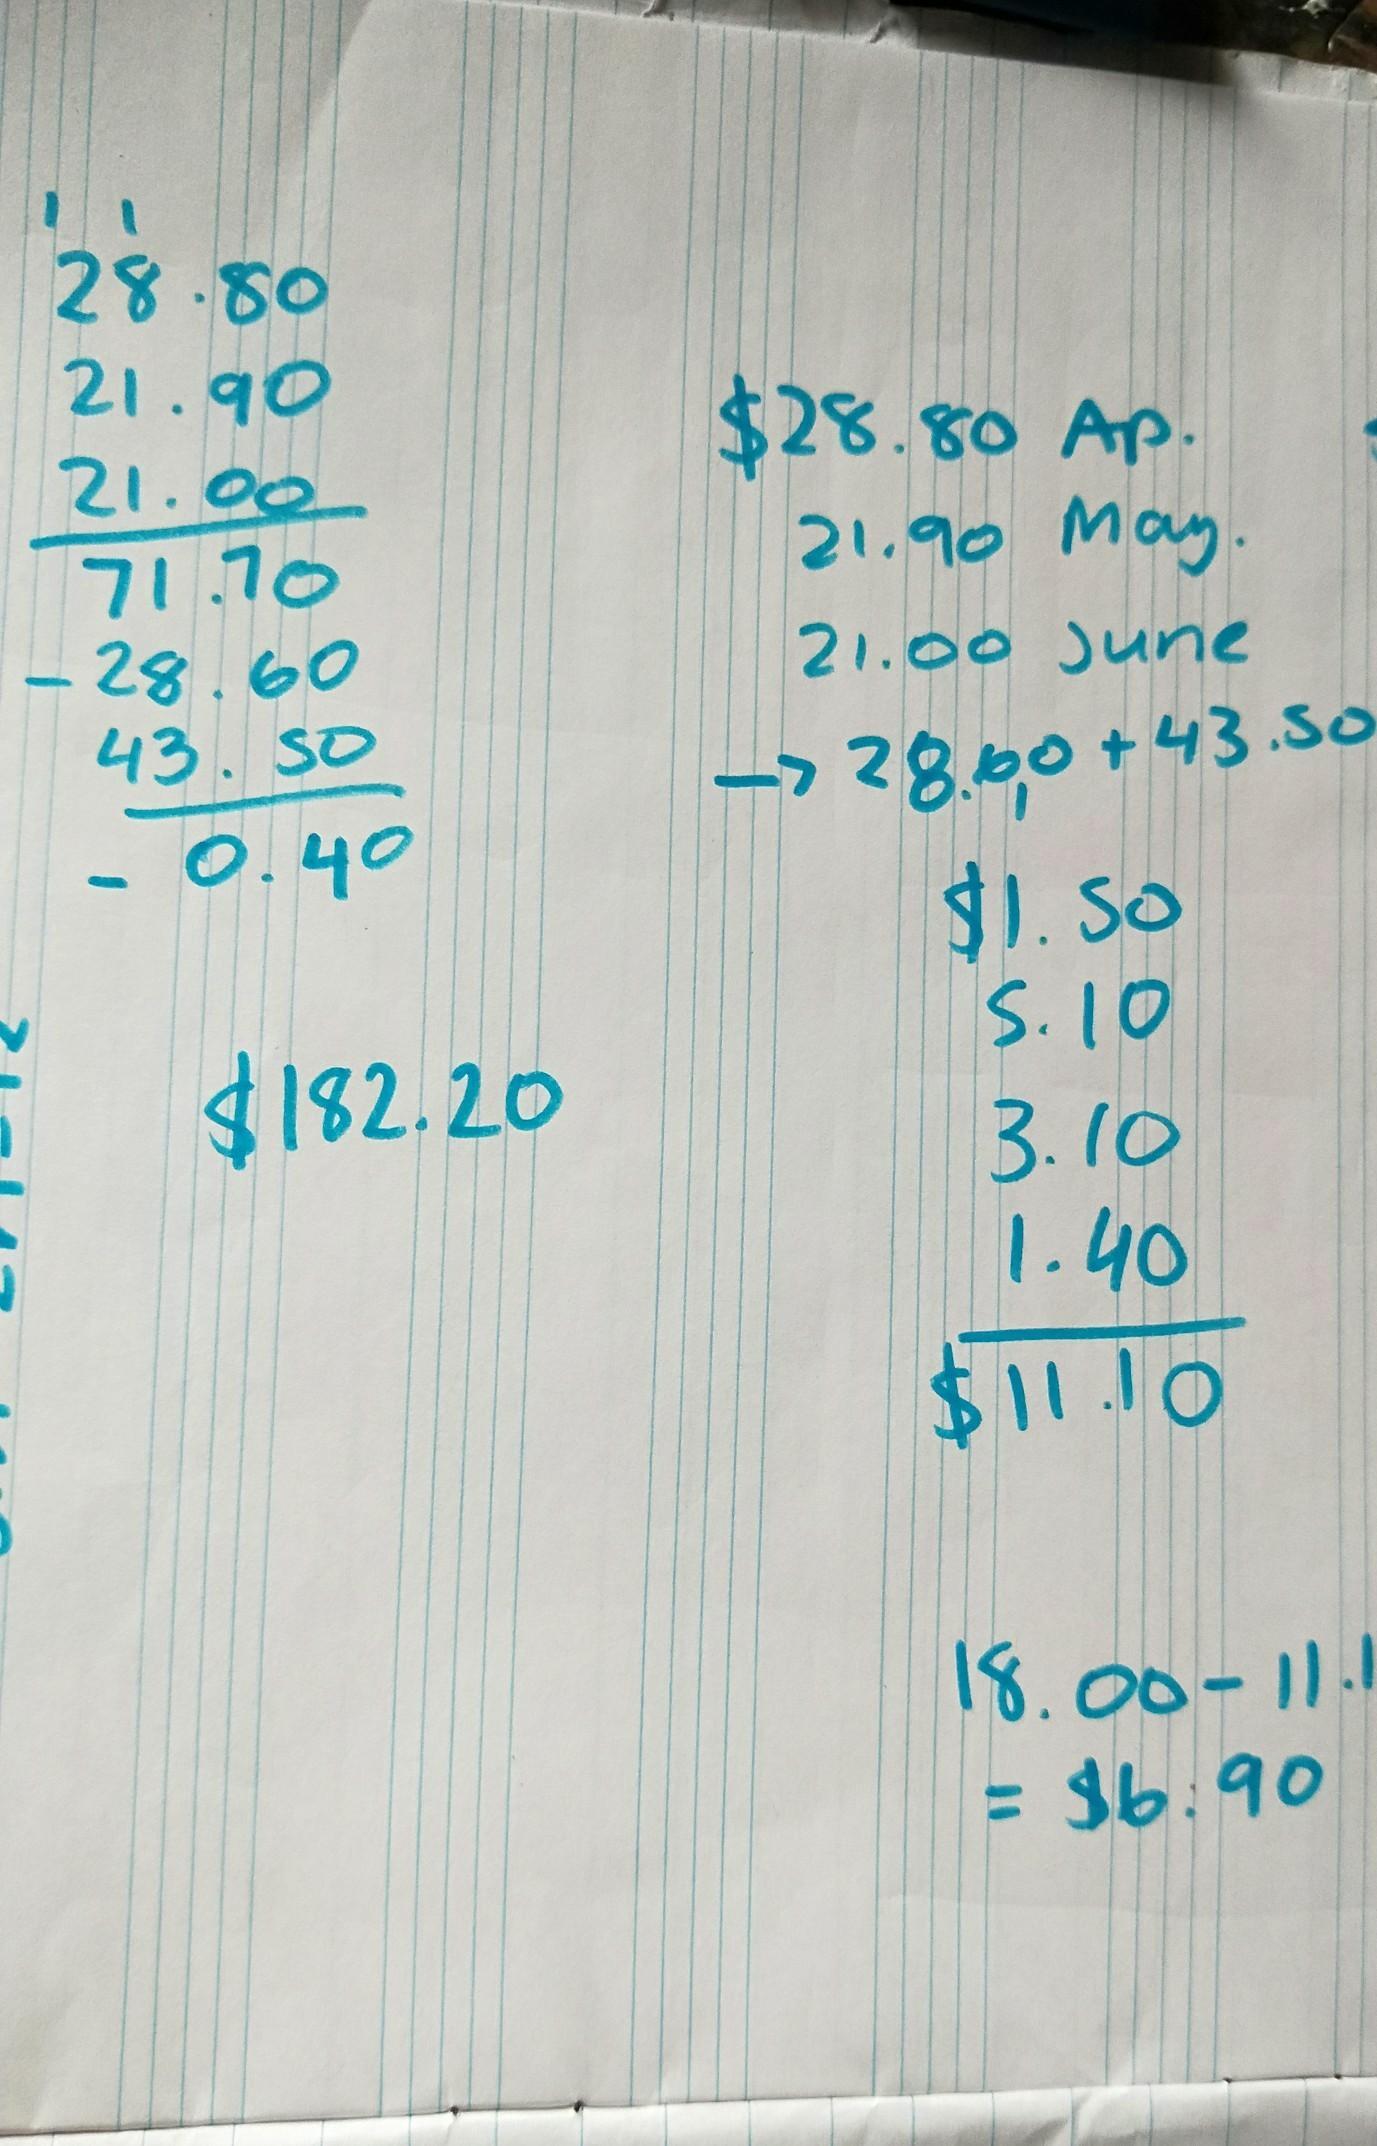 1 1
28.80
21.90
21.00
71.70
- 28.60
43.50
- 0.40
$182.20
$28.80 Ap.
21.90 May.
21.00 June
→ 28.60 + 43.50
$1.50
5.10
3.10
1.40
$11.10
18.00 - 11.1
= $6.90